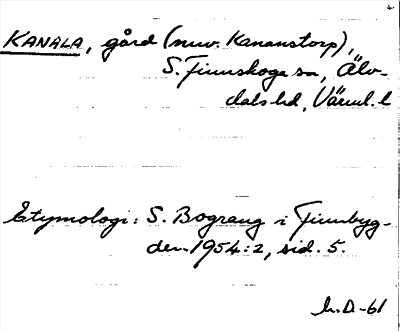 KANALA, gård (nuv. Kananstorp),
S. Finnskoga sn, Älv-
dals hd, Värml. l
Etymologi: S. Bograng i Finnbyg-
den 1954:2, sid. 5.
h.D-61